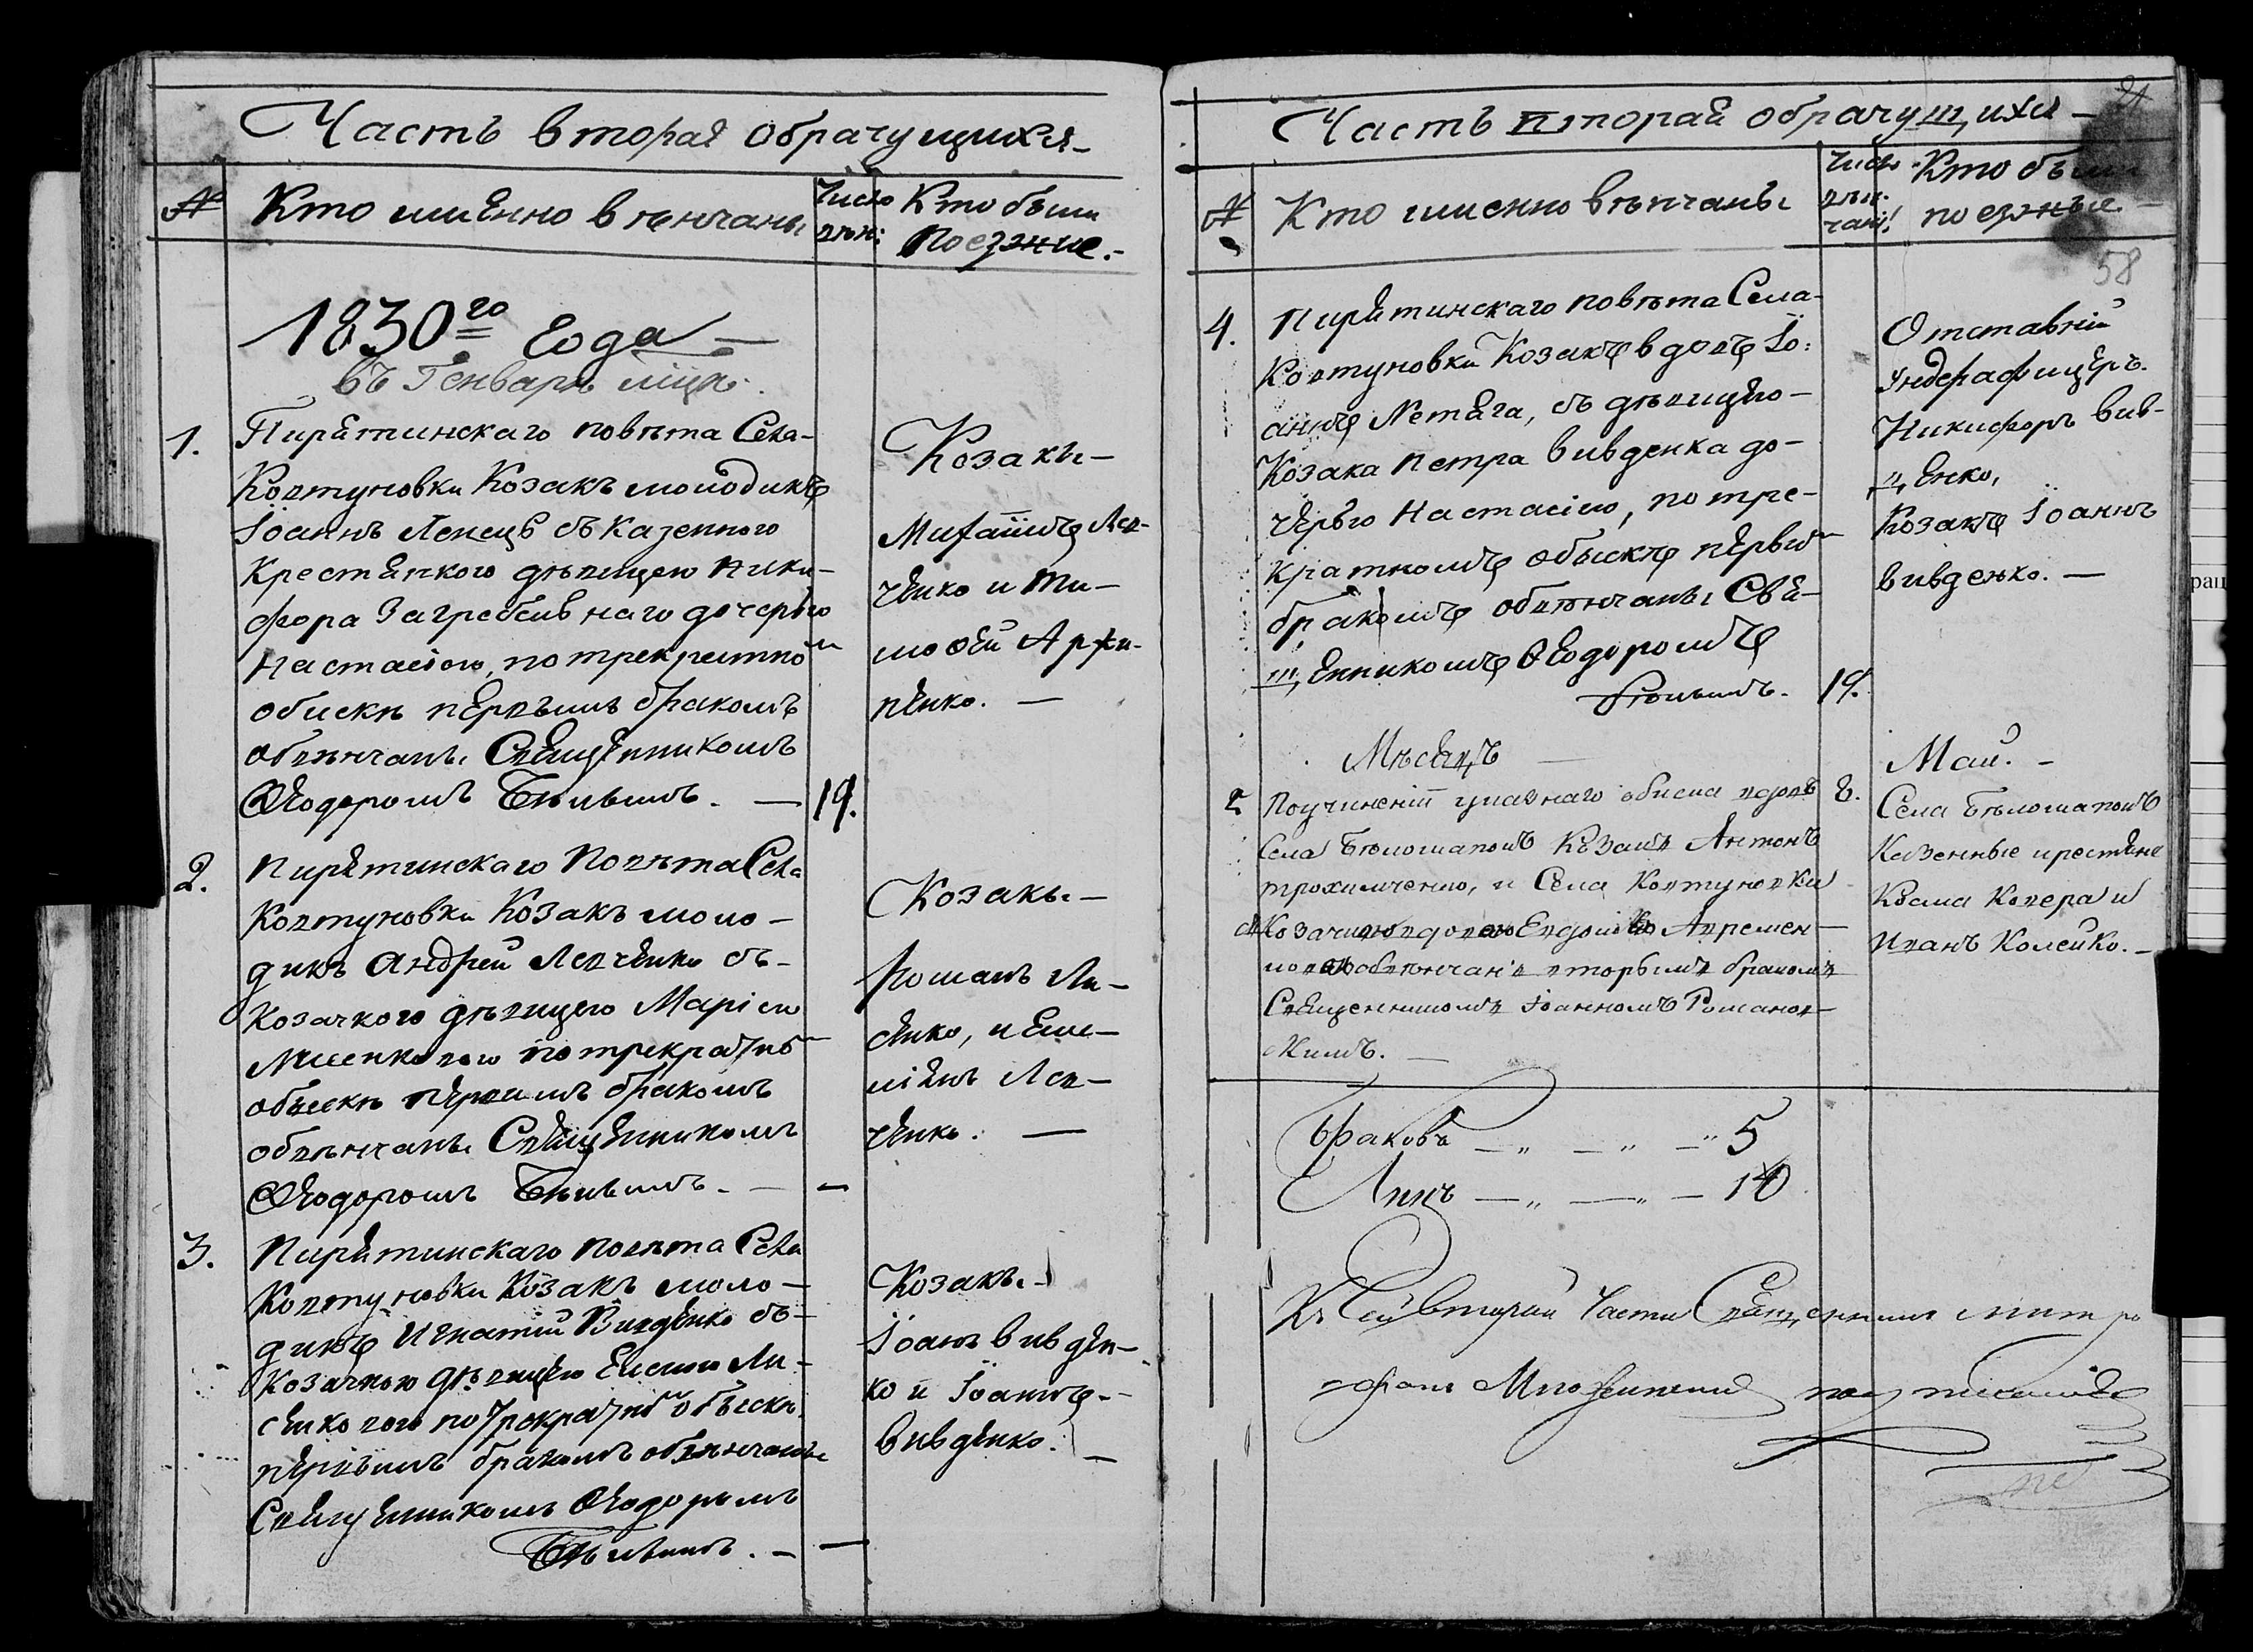 Часть вторая обрачущихся
№ Кто имѧнно вѣнчаны Число вѣн: Кто были поезжние.
1830го Года
въ Генварѣ мцѣ.
1. Пирѧтинскаго повѣта Села
Ковтуновки Козакъ молодикъ
Іоаннъ съ казенного
Крестѧнкою дѣвицею Ники-
фора Загребелнаго дочерью
Настасіею, по трекратно
обискѣ первымъ бракомъ
обвѣнчаны Свѧщенникомъ
Ѳеодоромъ Бѣлымъ. 19.
Козаки
Михаилъ Лев-
ченко и Ти-
моѳѣй Архи-
пенко.
2. Пирѧтинскаго Повѣта Села
Ковтуновки Козакъ моло-
дикъ Андрей Левченко съ
Козачкою дѣвицею Маріею
по трекратно
обыскѣ первимъ бракомъ
обвѣнчаны Свѧщенникомъ
Ѳеодоромъ Бѣлымъ.
Козаки
Романъ Ли-
сенко, и Еме-
лѧнъ Лев-
ченко.
3. Пирѧтинскаго повѣта Села
Ковтуновки Козакъ моло-
дикъ Игнатій Вивденко съ
Козачкою дѣвицею Ли-
сенковою по трекратно обыскѣ
первымъ бракомъ обвѣнчаны
Свѧщенникомъ Ѳеодоромъ
Бѣлымъ.
Козаки
Іоанъ Вивден-
ко и Іоаннъ
Вивденко.
Часть вторая обрачущихся
№ Кто именно вѣнчаны Число вѣнчані: Кто были поезжные
58
4. Пирѧтинскаго повѣта Села
Ковтуновки Козакъ вдовъ Іо-
аннъ Нетѧга, съ дѣвицею
Козака Петра Вивденка до-
черью Настасіею, по тре-
кратномъ обыскѣ первы
бракомъ обвѣнчаны Свѧ-
щенникомъ Ѳеодоромъ
Бѣлымъ. 19.
Отставній
Ундерафицеръ
Никифоръ Вив-
денко,
Козакъ Іоаннъ
Вивденко.
Мѣсѧцъ Май.
По учиненіи обиска вдовъ 8.
Села Бѣлошапокъ Козакъ Антонъ
Трохимченко, и Села Ковтуновки
Козачкою вдовою Евдокіею Явремен-
ковою обвѣнчанъ вторымъ бракомъ
Свѧщенникомъ Іоанномъ Романов-
скимъ.
Села Бѣлошапокъ
Казенные крестѧне
Косма Копера и
Иванъ Колейко.
Браковъ 5
Лицъ 10
Къ Сей второй Части Свѧщенникъ Митро
фанъ подписался